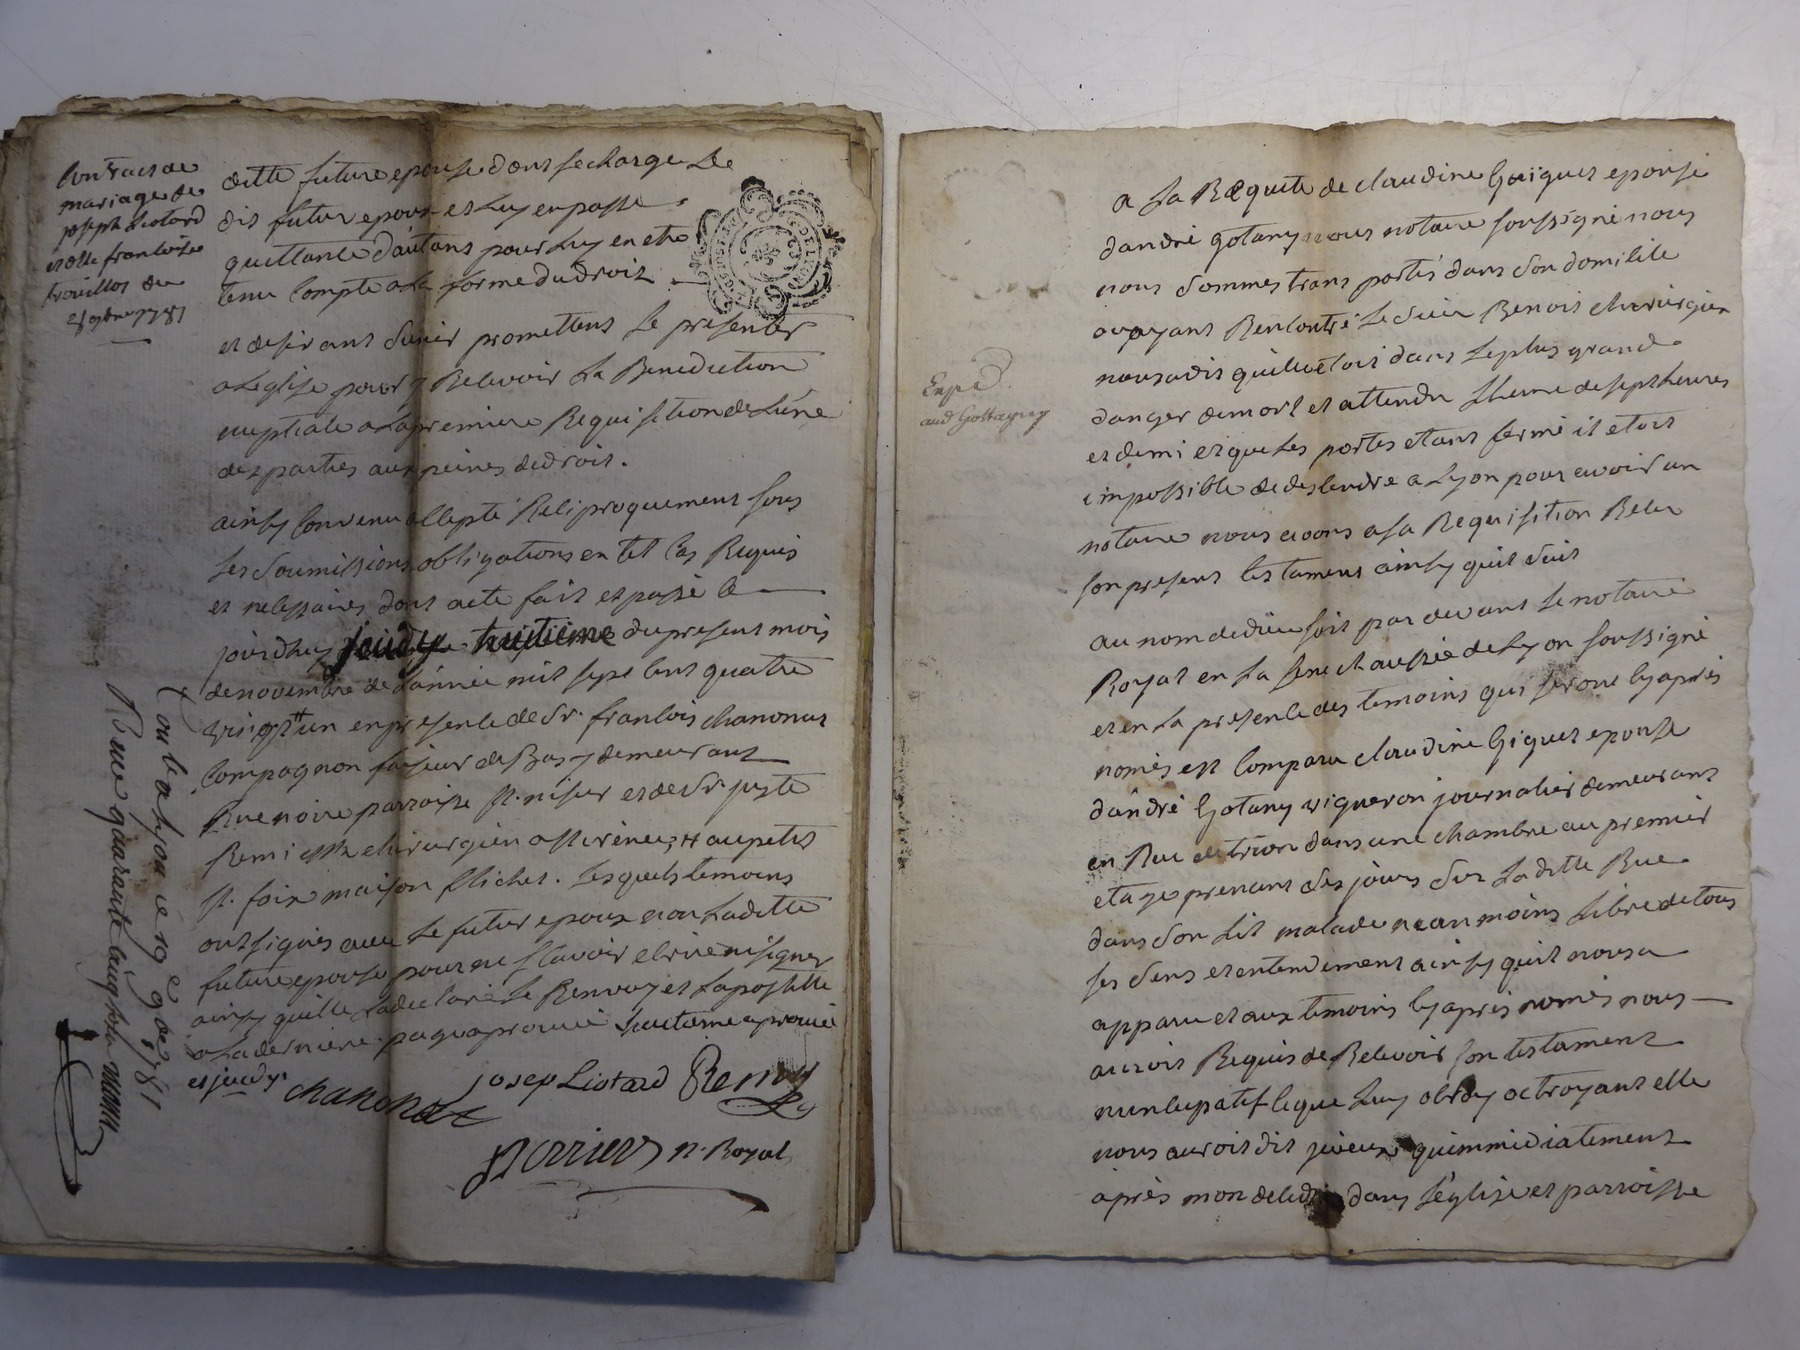 Contract de
mariage de
joseph Liotard
et dlle francoise
trouillot du
8 9bre 1781
ditte future epouse dont se charge Le
dit futur epoux et Luy en passe
quittance dautant pour Luy en etre
tenu Compte a la forme du droit
et desirant sunir promettent se presenter
a Leglise pour y Recevoir La Benediction
nuptiale a La premiere Requisition de L'une
des parties aux peines de droit.
ainsy Convenu accepté Reciproquement sous
Les soumissions obligations en tel Cas Requis
et necessaires dont acte fait et passé le
jourdhuy jeudy huitieme du present mois
de novembre de L'année mil sept Cent quatre
vingt un en presence de Sr. francois chanonat
Compagnon faiseur de Bas y demeurant
Rue noire parroisse st. nisier et de Sr juste
Remi chirurgien a st irénée, au petit
st. foix maison flichet. Lesquels temoins
ont signés avec Le futur epoux non La ditte
future epouse pour ne scavoir ecrire ni signer
ainsy quelle La declaré Le Renvoy et Lapostille
a La derniere page aprouvé huitieme aprouvé
et jeudy.
chanonat
josep Liotard
Remy
perrier n. Royal
Con a Lyon le 19 e 9bre 1781
Reçu quarante Cinq sols
Expé
aud Gottagney
a La Requete de claudine Guiguet epouse
dandré gotany nous notaire soussigné nous
nous sommes transportés dans son domicile
ou ayant Rencontré Le sieur Benoit chirurgien
nous a dit quelle etoit dans Le plus grand
danger de mort et attendu Lheure de sept heures
et demi et que Les portes etant fermé il etoit
impossible de descendre a Lyon pour avoir un
notaire nous avons a sa Requisition Recu
son present testament ainsy quil suit
au nom de dieu soit par devant Le notaire
Royal en La senechaussée de Lyon soussigné
et en La presence des temoins qui seront cy après
només est Comparu claudine Giguet epouse
d'andré Gotany vigneron journalier demeurant
en Rue de trion dans une chambre au premier
etage prenant ses jours sur La ditte Rue
dans son Lit malade neanmoins Libre de tous
ses sens et entendement ainsy quil nous a
apparu et aux temoins cy après només nous
auroit Requis de Recevoir son testament
nuncupatif ce que Luy obtoy octroyant elle
nous auroit dit je veux quimmediatement
après mon deced dans Léglise et parroisse